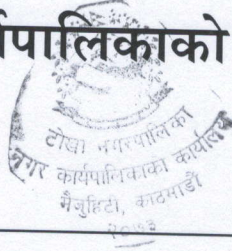 र्यपालिकाको
टोखा नगरपालिका
नगर कार्यपालिकाको कार्यालय
मैजुहिटी, काठमाडौं
२०७३